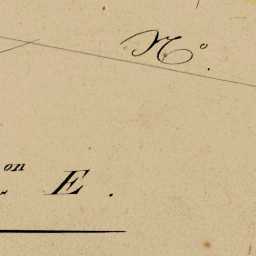 N°.
on E.